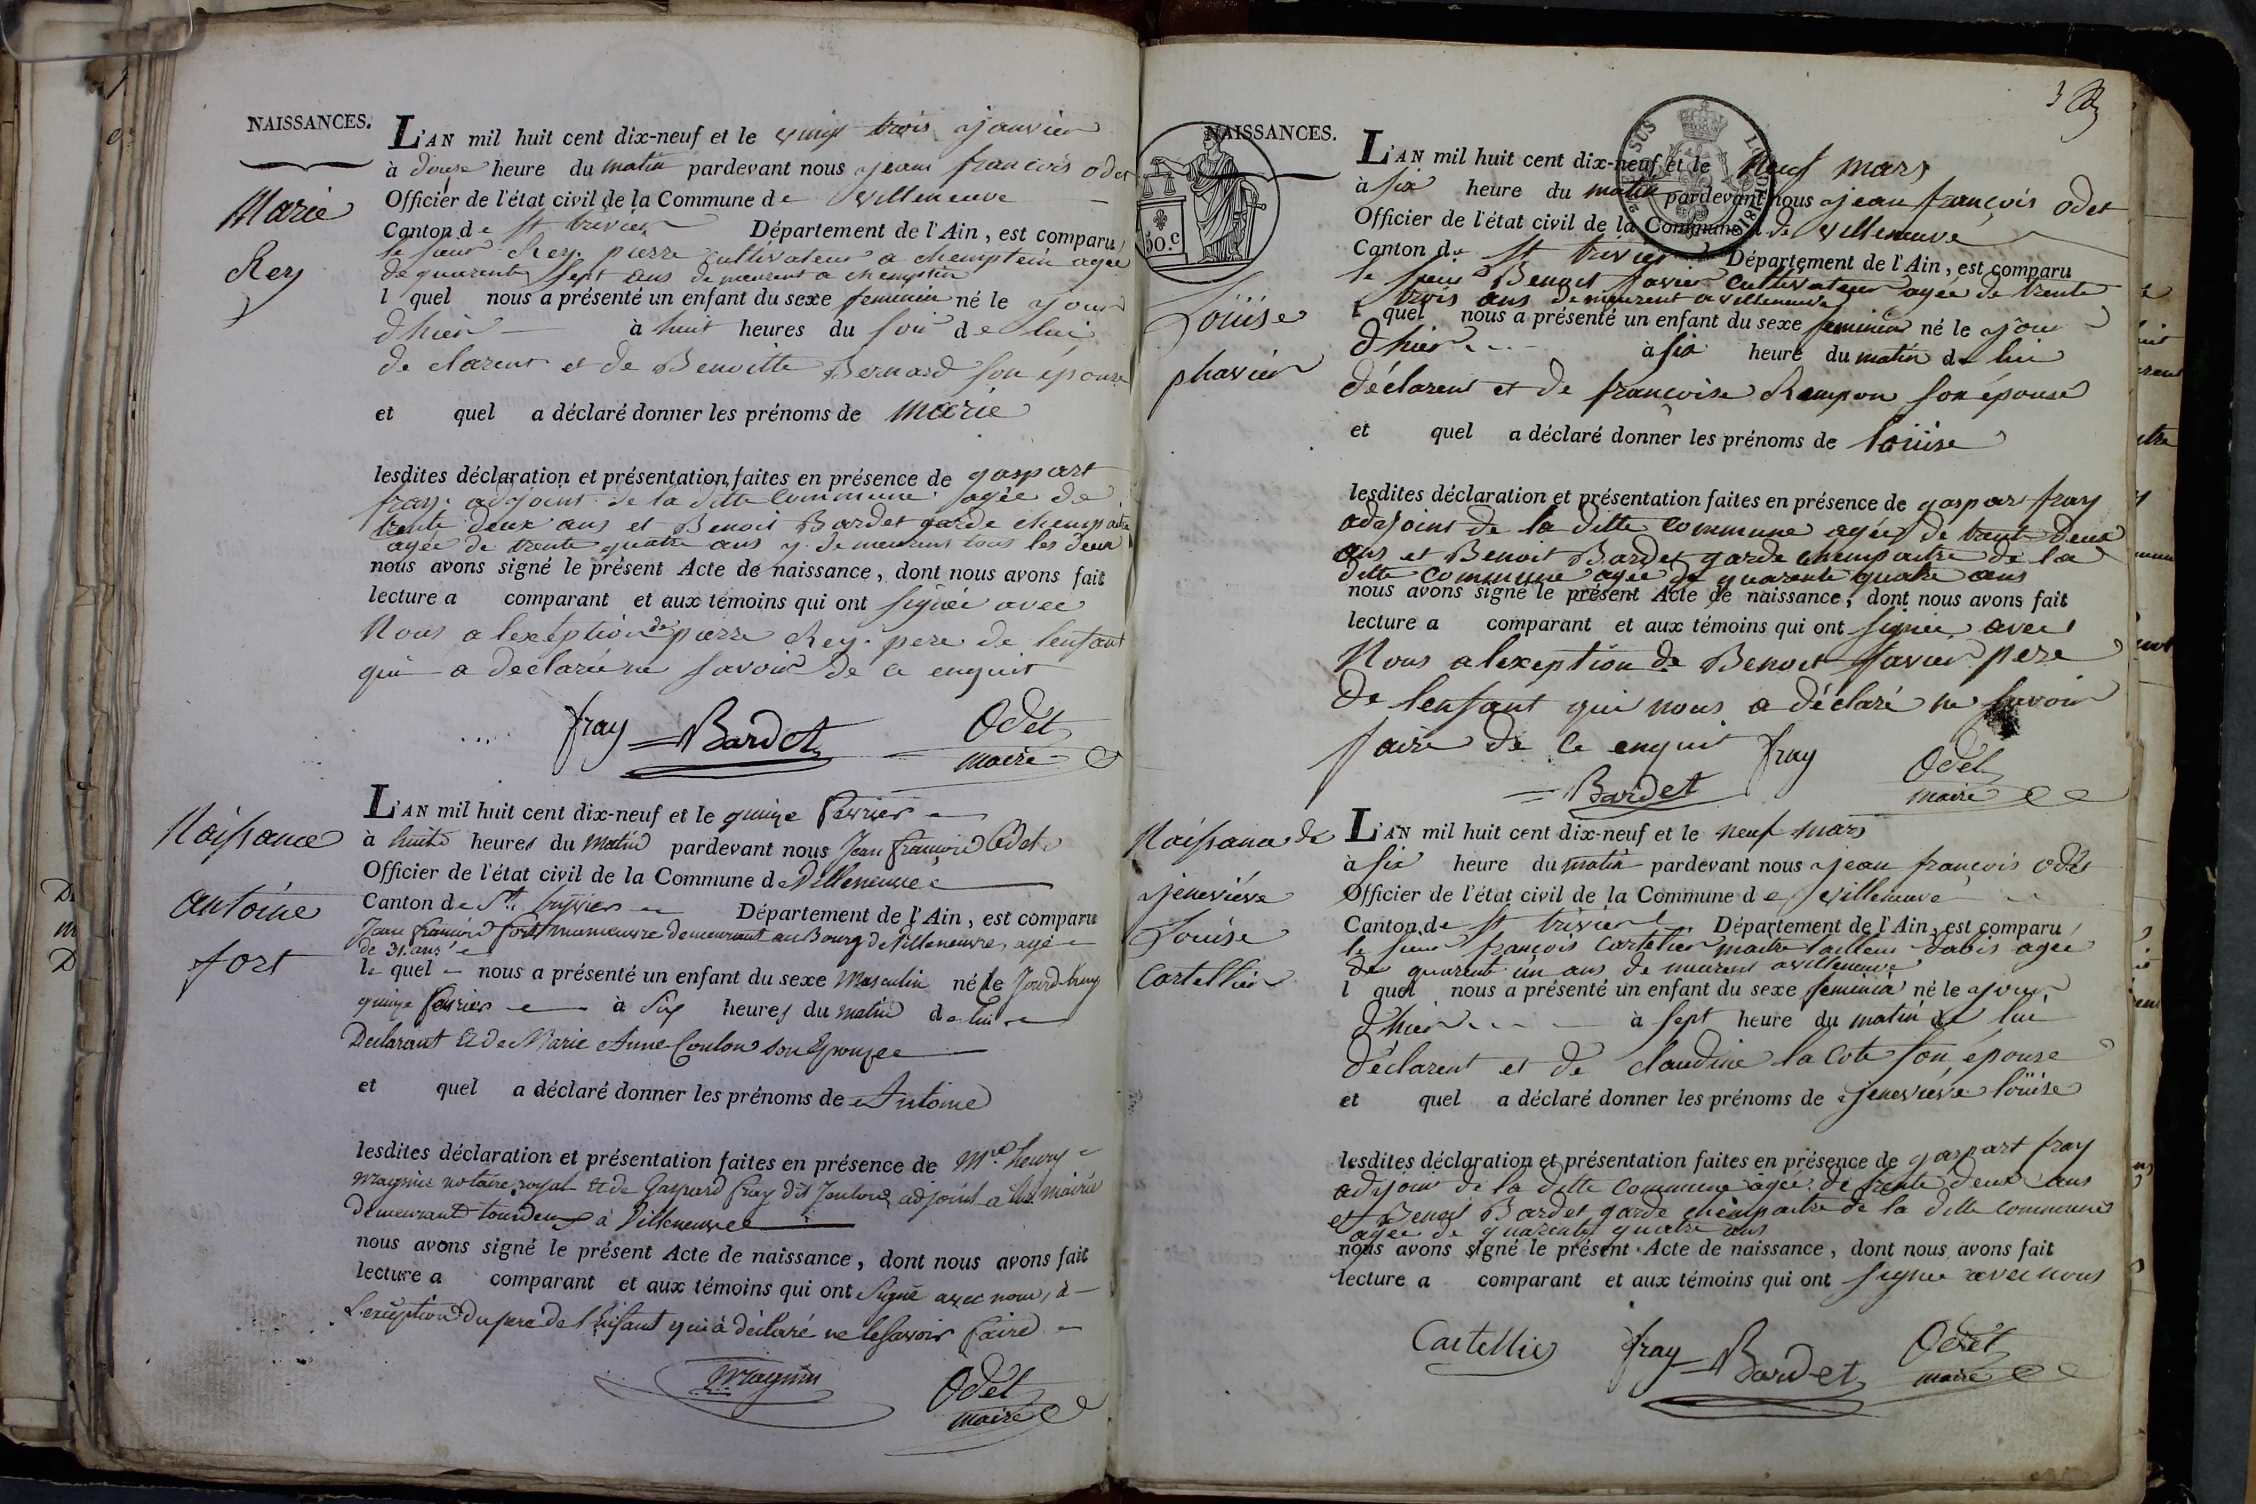 NAISSANCES.
Marie
Rey
L'AN mil huit cent dix-neuf et le vingt trois janvier
à douze heure du matin pardevant nous jean francois odet
Officier de l'état civil de la Commune de villeneuve
Canton de St trivier Département de l'Ain, est comparu
le sieur Rey pierre cultivateur a chemptein agée
de quarente sept ans demeurent a chemptein
l quel nous a présenté un enfant du sexe feminin né le jour
d'hier à huit heures du soir de lui
de clarent et de Benoitte Bernard son épouse
et quel a déclaré donner les prénoms de marie
lesdites déclaration et présentation faites en présence de gaspart
fray adjoint de la ditte commune agée de
trente deux ans et Benoit Bardet garde chempaitre
agée de trente quatre ans y demeurent tous les deux
nous avons signé le présent Acte de naissance, dont nous avons fait
lecture a comparant et aux témoins qui ont signée avec
Nous a lexception de pierre Rey pere de lenfant
qui a declarée ne savoir de ce enquit
fray Bardet Odet
maire
Naissance
antoine
fort
L'AN mil huit cent dix-neuf et le quinze fevrier
à huit heures du matin pardevant nous Jean françois Odet
Officier de l'état civil de la Commune de Villeneuve
Canton de St. trivier Département de l'Ain, est comparu
Jean françois fort manœuvre demeurant au Bourg de Villeneuve, agé
de 31 ans
le quel nous a présenté un enfant du sexe Masculin né le Jourd'huy
quinze fevrier à Six heures du matin de lui
Declarant & de Marie Anne Coulon son Epouze
et quel a déclaré donner les prénoms de Antoine
lesdites déclaration et présentation faites en présence de Mre. henry
magnin notaire royal & de Gaspard fray dit adjoint a la mairie
demeurant tou deux à Villeneuve
nous avons signé le présent Acte de naissance, dont nous avons fait
lecture a comparant et aux témoins qui ont Signé avec nous, à
L'exception du pere de l'Enfant qui à déclaré ne le savoir faire
magnin Odet
maire
3
NAISSANCES.
50.c
Loüise
phavier
L'AN mil huit cent dix-neuf et le Neuf mars
à six heure du matin pardevant nous jean françois odet
Officier de l'état civil de la Commune de villeneuve
Canton de St trivier Département de l'Ain, est comparu
le sieur Benoit favier cultivateur agée de trente
trois ans demeurent a villeneuve
l quel nous a présenté un enfant du sexe feminin né le jour
d'hier à six heure du matin de lui
déclarent et de françoise Rampon son épouse
et quel a déclaré donner les prénoms de loüise
lesdites déclaration et présentation faites en présence de gaspar fray
adjoint de la ditte commune agée de trente deux
ans et Benoit Bardet garde chempaitre de la
ditte commune agée de quarente quatre ans
nous avons signé le présent Acte de naissance, dont nous avons fait
lecture a comparant et aux témoins qui ont signée avec
Nous a lexeption de Benoit favier pere
de lenfant qui nous a déclaré ne savoir
faire de ce enquit fray Odet
Bardet maire
Naissance de
jeneviéve
Loüise
Cartellier
L'AN mil huit cent dix-neuf et le neuf mars
à six heure du matin pardevant nous jean françois odet
Officier de l'état civil de la Commune de villeneuve
Canton de St trivier Département de l'Ain, est comparu
le sieur françois cartelier maitre tailleur dabis agée
de quarente un ans demeurent a villeneuve
l quel nous a présenté un enfant du sexe feminin né le jour
d'hier à sept heure du matin de lui
déclarent et de claudine la cote son épouse
et quel a déclaré donner les prénoms de jeneviéve loüise
lesdites déclaration et présentation faites en présence de gaspart fray
adjoint de la ditte commune agée de trente deux ans
et Benoit Bardet garde chempaitre de la ditte commune
agée de quarente quatre ans
nous avons signé le présent Acte de naissance, dont nous avons fait
lecture a comparant et aux témoins qui ont signée avec nous
Cartellie fray Bardet Odet
maire